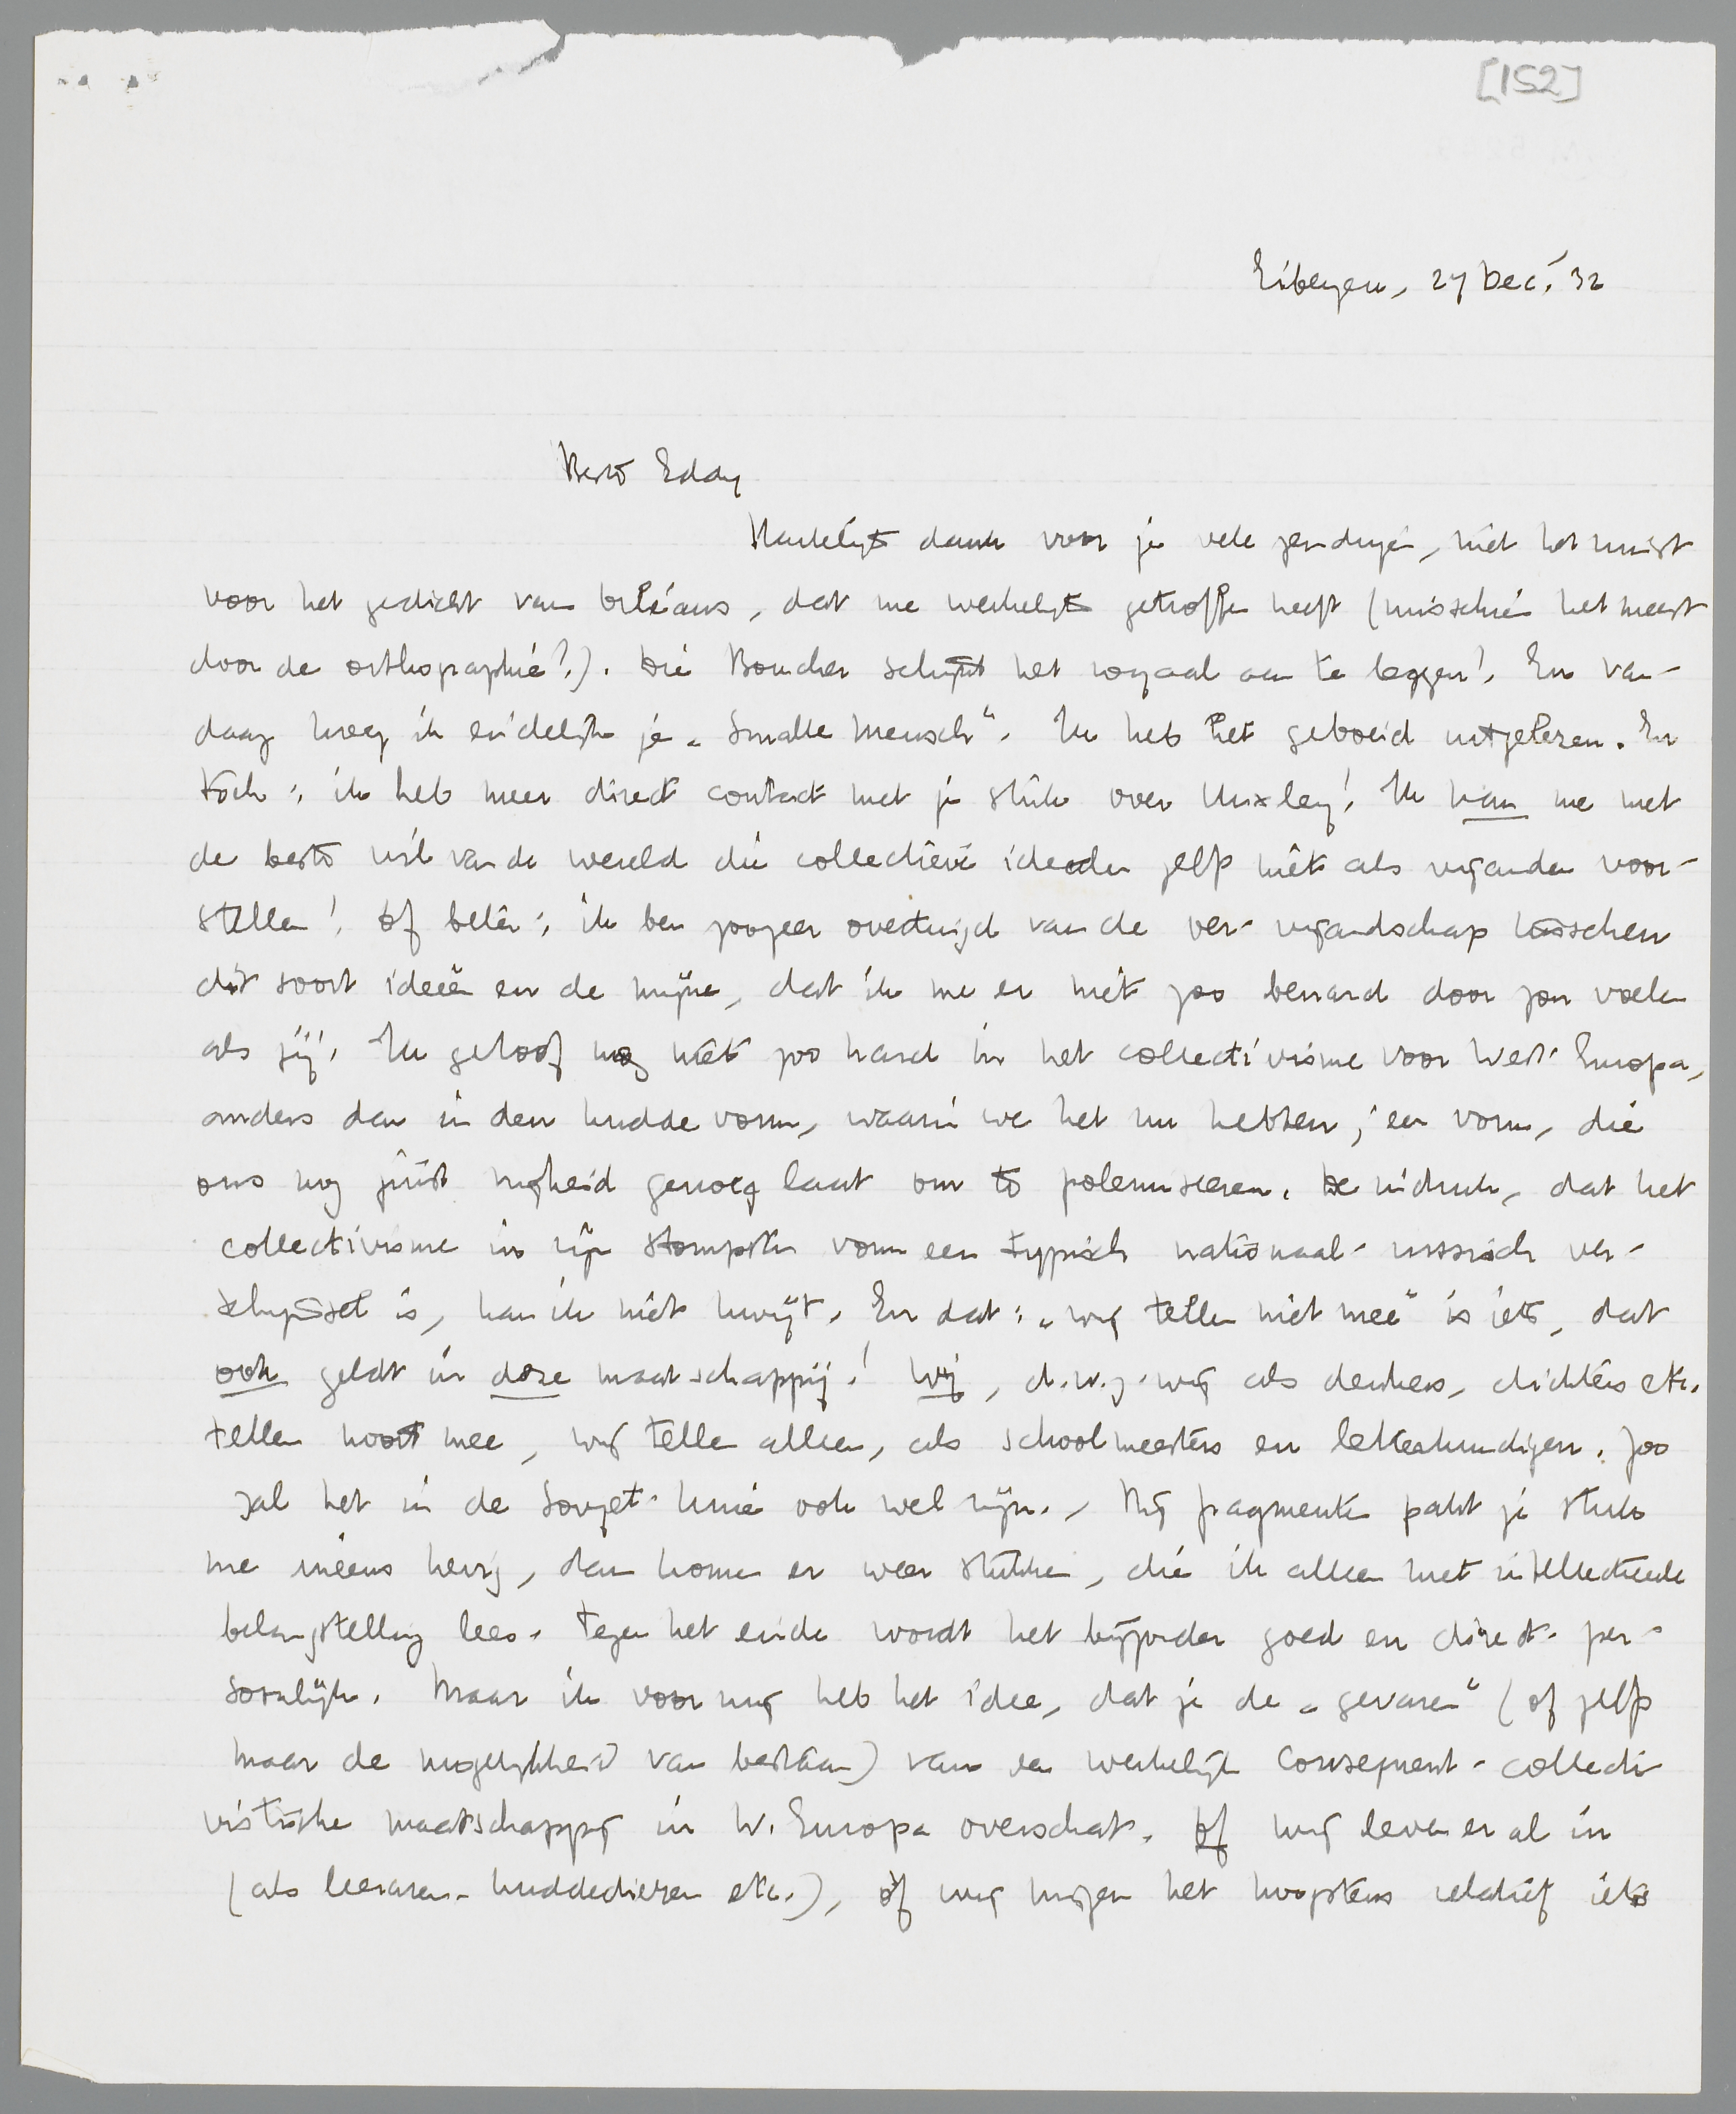 [152]
Eibergen, 27 Dec. '32
Beste Eddy
Hartelijk dank voor je vele zendingen, niet het minst
voor het gedicht van Orléans, dat me werkelijk getroffen heeft (misschien het meest
door de orthographie?). Die Boucher schijnt het royaal aan te leggen! En van-
daag kreeg ik eindelijk je „Smalle Mensch". Ik heb het geboeid uitgelezen. En
toch: ik heb meer direct contact met je stuk over Huxley! Ik kan me met
de beste wil van de wereld die collectieve idealen zelfs niet als vijanden voor-
stellen! Of beter: ik ben zoozeer overtuigd van de ver-vijandschap tusschen
dit soort ideeën en de mijne, dat ik me er niet zoo benard door zou voelen
als jij. Ik geloof nog niet zoo hard in het collectivisme voor West-Europa,
anders dan in den kudde vorm, waarin we het nu hebben; een vorm, die
ons nog juist vrijheid genoeg laat om te polemiseeren. De indruk, dat het
collectivisme in zijn stompsten vorm een typisch nationaal-russisch ver-
schijnsel is, kan ik niet kwijt. En dat: „wij tellen niet mee" is iets, dat
ook geldt in deze maatschappij! Wij, d.w.z. wij als denkers, dichters etc.
tellen nooit mee, wij tellen alleen, als schoolmeesters en letterkundigen. Zoo
zal het in de Sovjet-Unie ook wel zijn. - Bij fragmenten pakt je stuk
me ineens hevig, dan komen er weer stukken, die ik alleen met intellectueele
belangstelling lees. Tegen het einde wordt het bijzonder goed en direct-per-
soonlijk. Maar ik voor mij heb het idee, dat je de „gevaren" (of zelfs
maar de mogelijkheid van bestaan) van een werkelijk consequent-collecti
vistische maatschappij in W. Europa overschat. Of wij leven er al in
(als leeraren-kuddedieren etc.), òf wij krijgen het hoogstens relatief iets